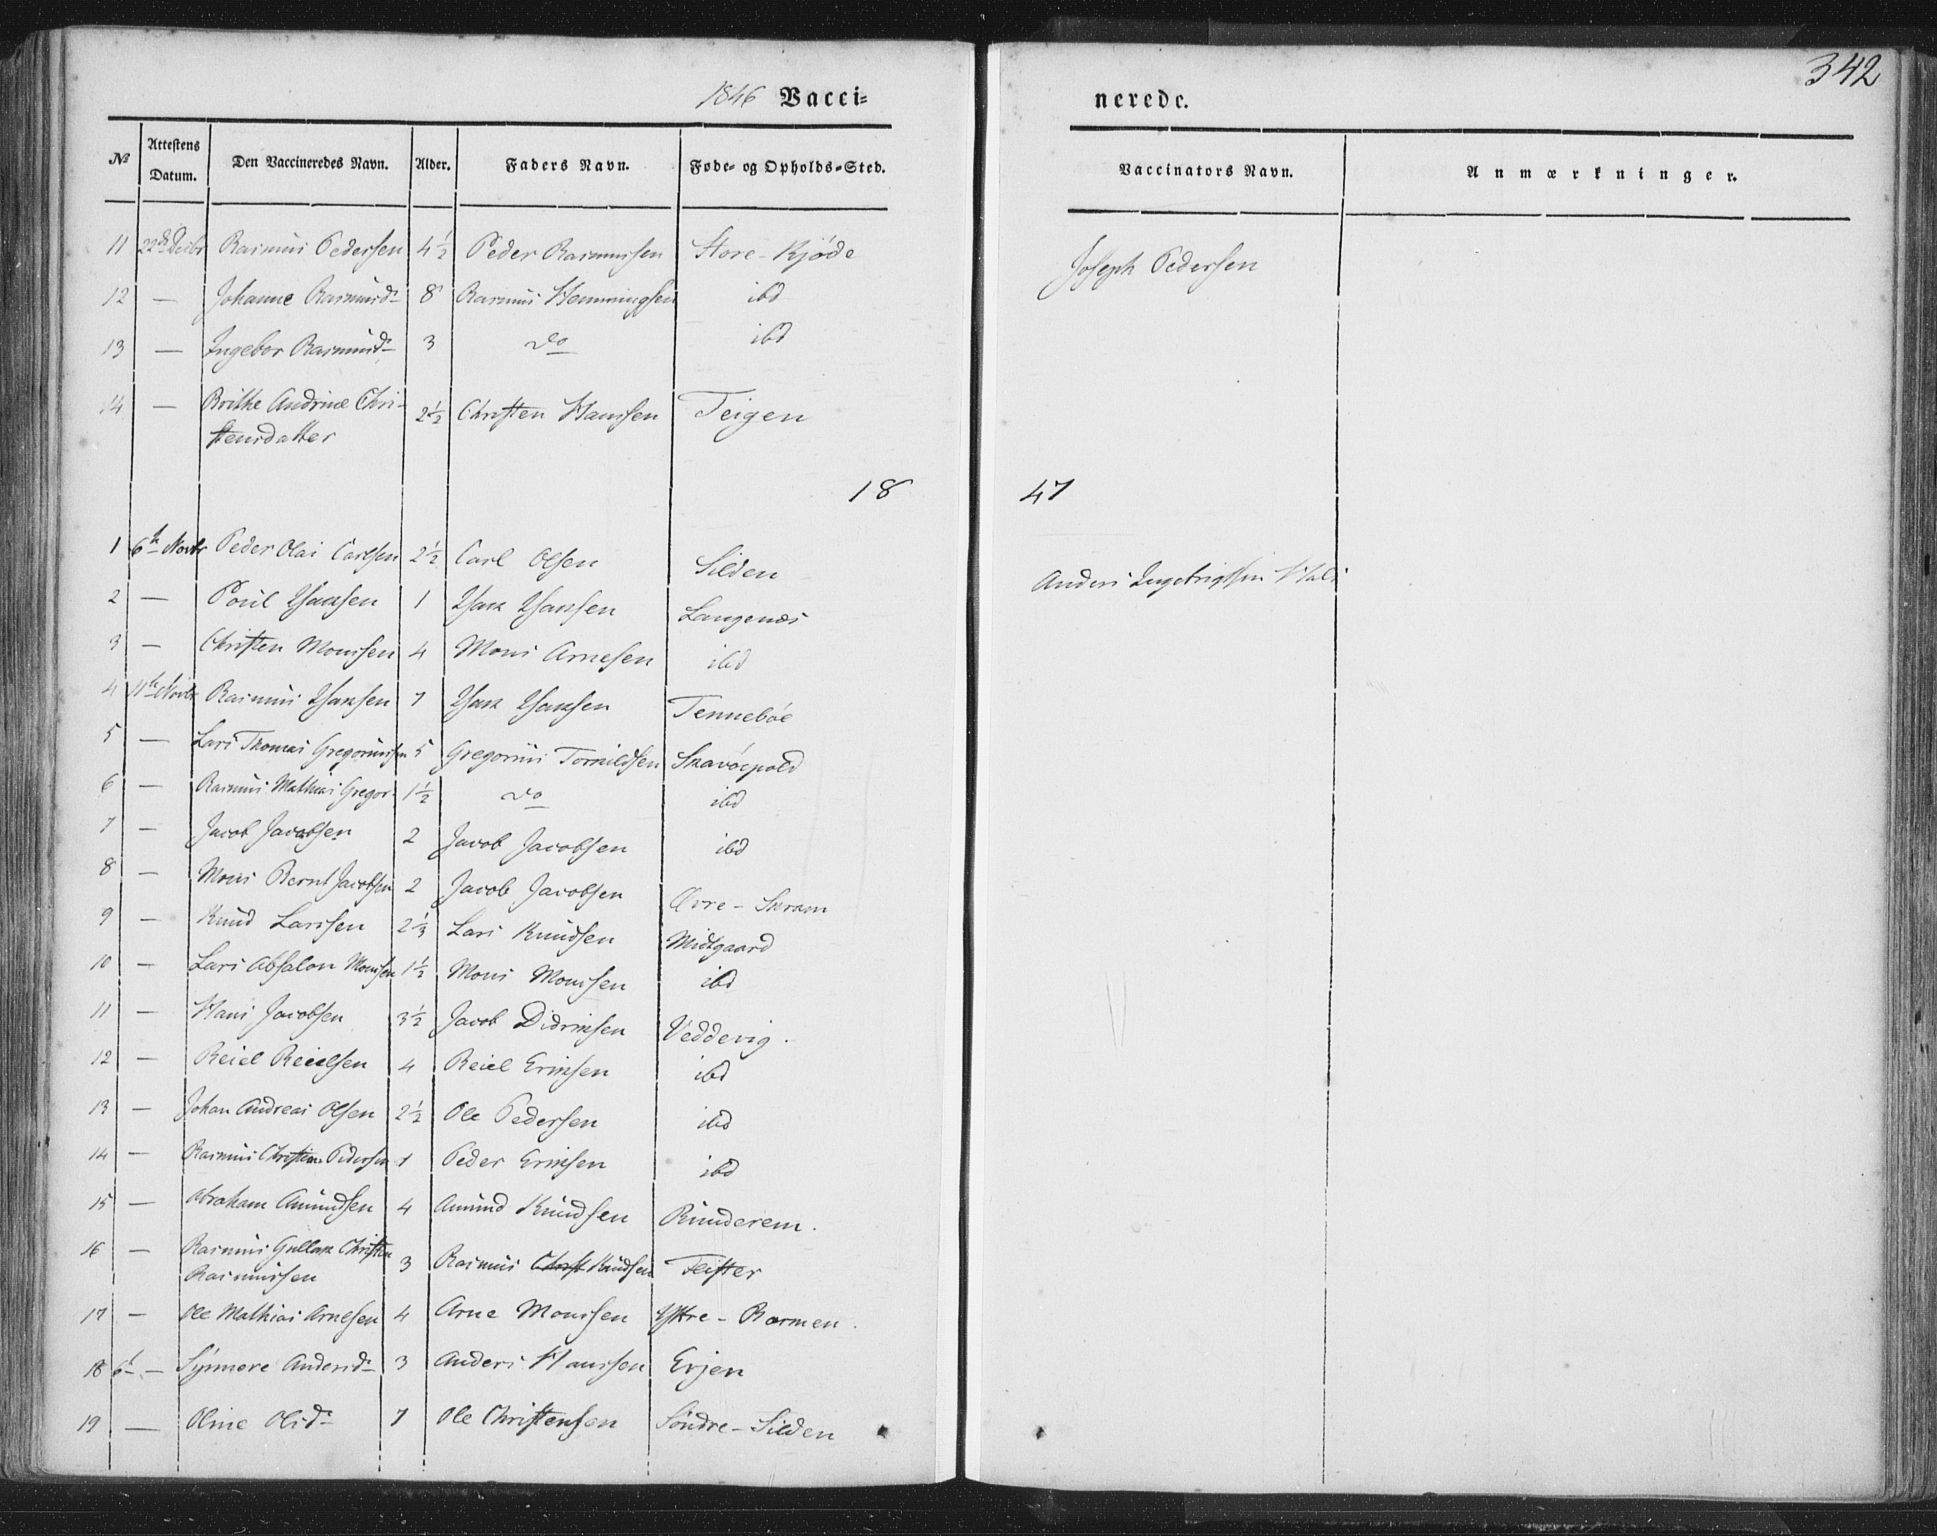 342
1846 Vacci=
nerede.
№ Attestens Datum. Den Vaccineredes Navn. Alder. Faders Navn. Føde- og Opholds-Sted.
Vaccinators Navn. Anmærkninger.
11 22de Decbr Rasmus Pedersen 4½ Peder Rasmussen Store-Kjøde Joseph Pedersen
12 — Johanne Rasmusdr 8 Rasmus Hemmingsen ibd
13 — Ingebor Rasmusdr 3 do ibd
14 — Brithe Andrine Chri-
stensdatter 2½ Christen Hanssen Teigen
18 47
1 6te Novbr Peder Olai Carlsen 2½ Carl Olsen Silden Anders Ingebrigtsen
2 — Poul Isaksen 1 Isak Isaksen Langenæs
3 — Christen Monssen 4 Mons Arnesen ibd
4 11te Novbr Rasmus Isaksen 7 Isak Isaksen Tennebøe
5 — Lars Thomas Gregoriussen 5 Gregorius Torkildsen Skavøepold
6 — Rasmus Mathias Gregor- 1½ do ibd
7 — Jacob Jacobsen 2 Jacob Jacobsen ibd
8 — Mons Bernt Jacobsen 2 Jacob Jacobsen Øvre-Skram
9 — Knud Larssen 2⅓ Lars Knudsen Midtgaard
10 — Lars Absalon Monssen 1½ Mons Monssen ibd
11 — Hans Jacobsen 3½ Jacob Didriksen Veddevig.
12 — Reiel Reielsen 4 Reiel Eriksen ibd
13 — Johan Andreas Olsen 2½ Ole Pedersen ibd
14 — Rasmus Christian Pedersen 1 Peder Eriksen ibd
15 — Abraham Amundsen 4 Amund Knudsen Rimderem.
16 — Rasmus Gullak Christen
Rasmussen 3 Rasmus Christ Knudsen Teister
17 — Ole Mathias Arnesen 4 Arne Monssen Ystre-Barmen.
18 6te — Synnere Andersdr 3 Anders Hanssen Ervjen
19 — Oline Olsdr 7 Ole Christensen Søndre-Silden